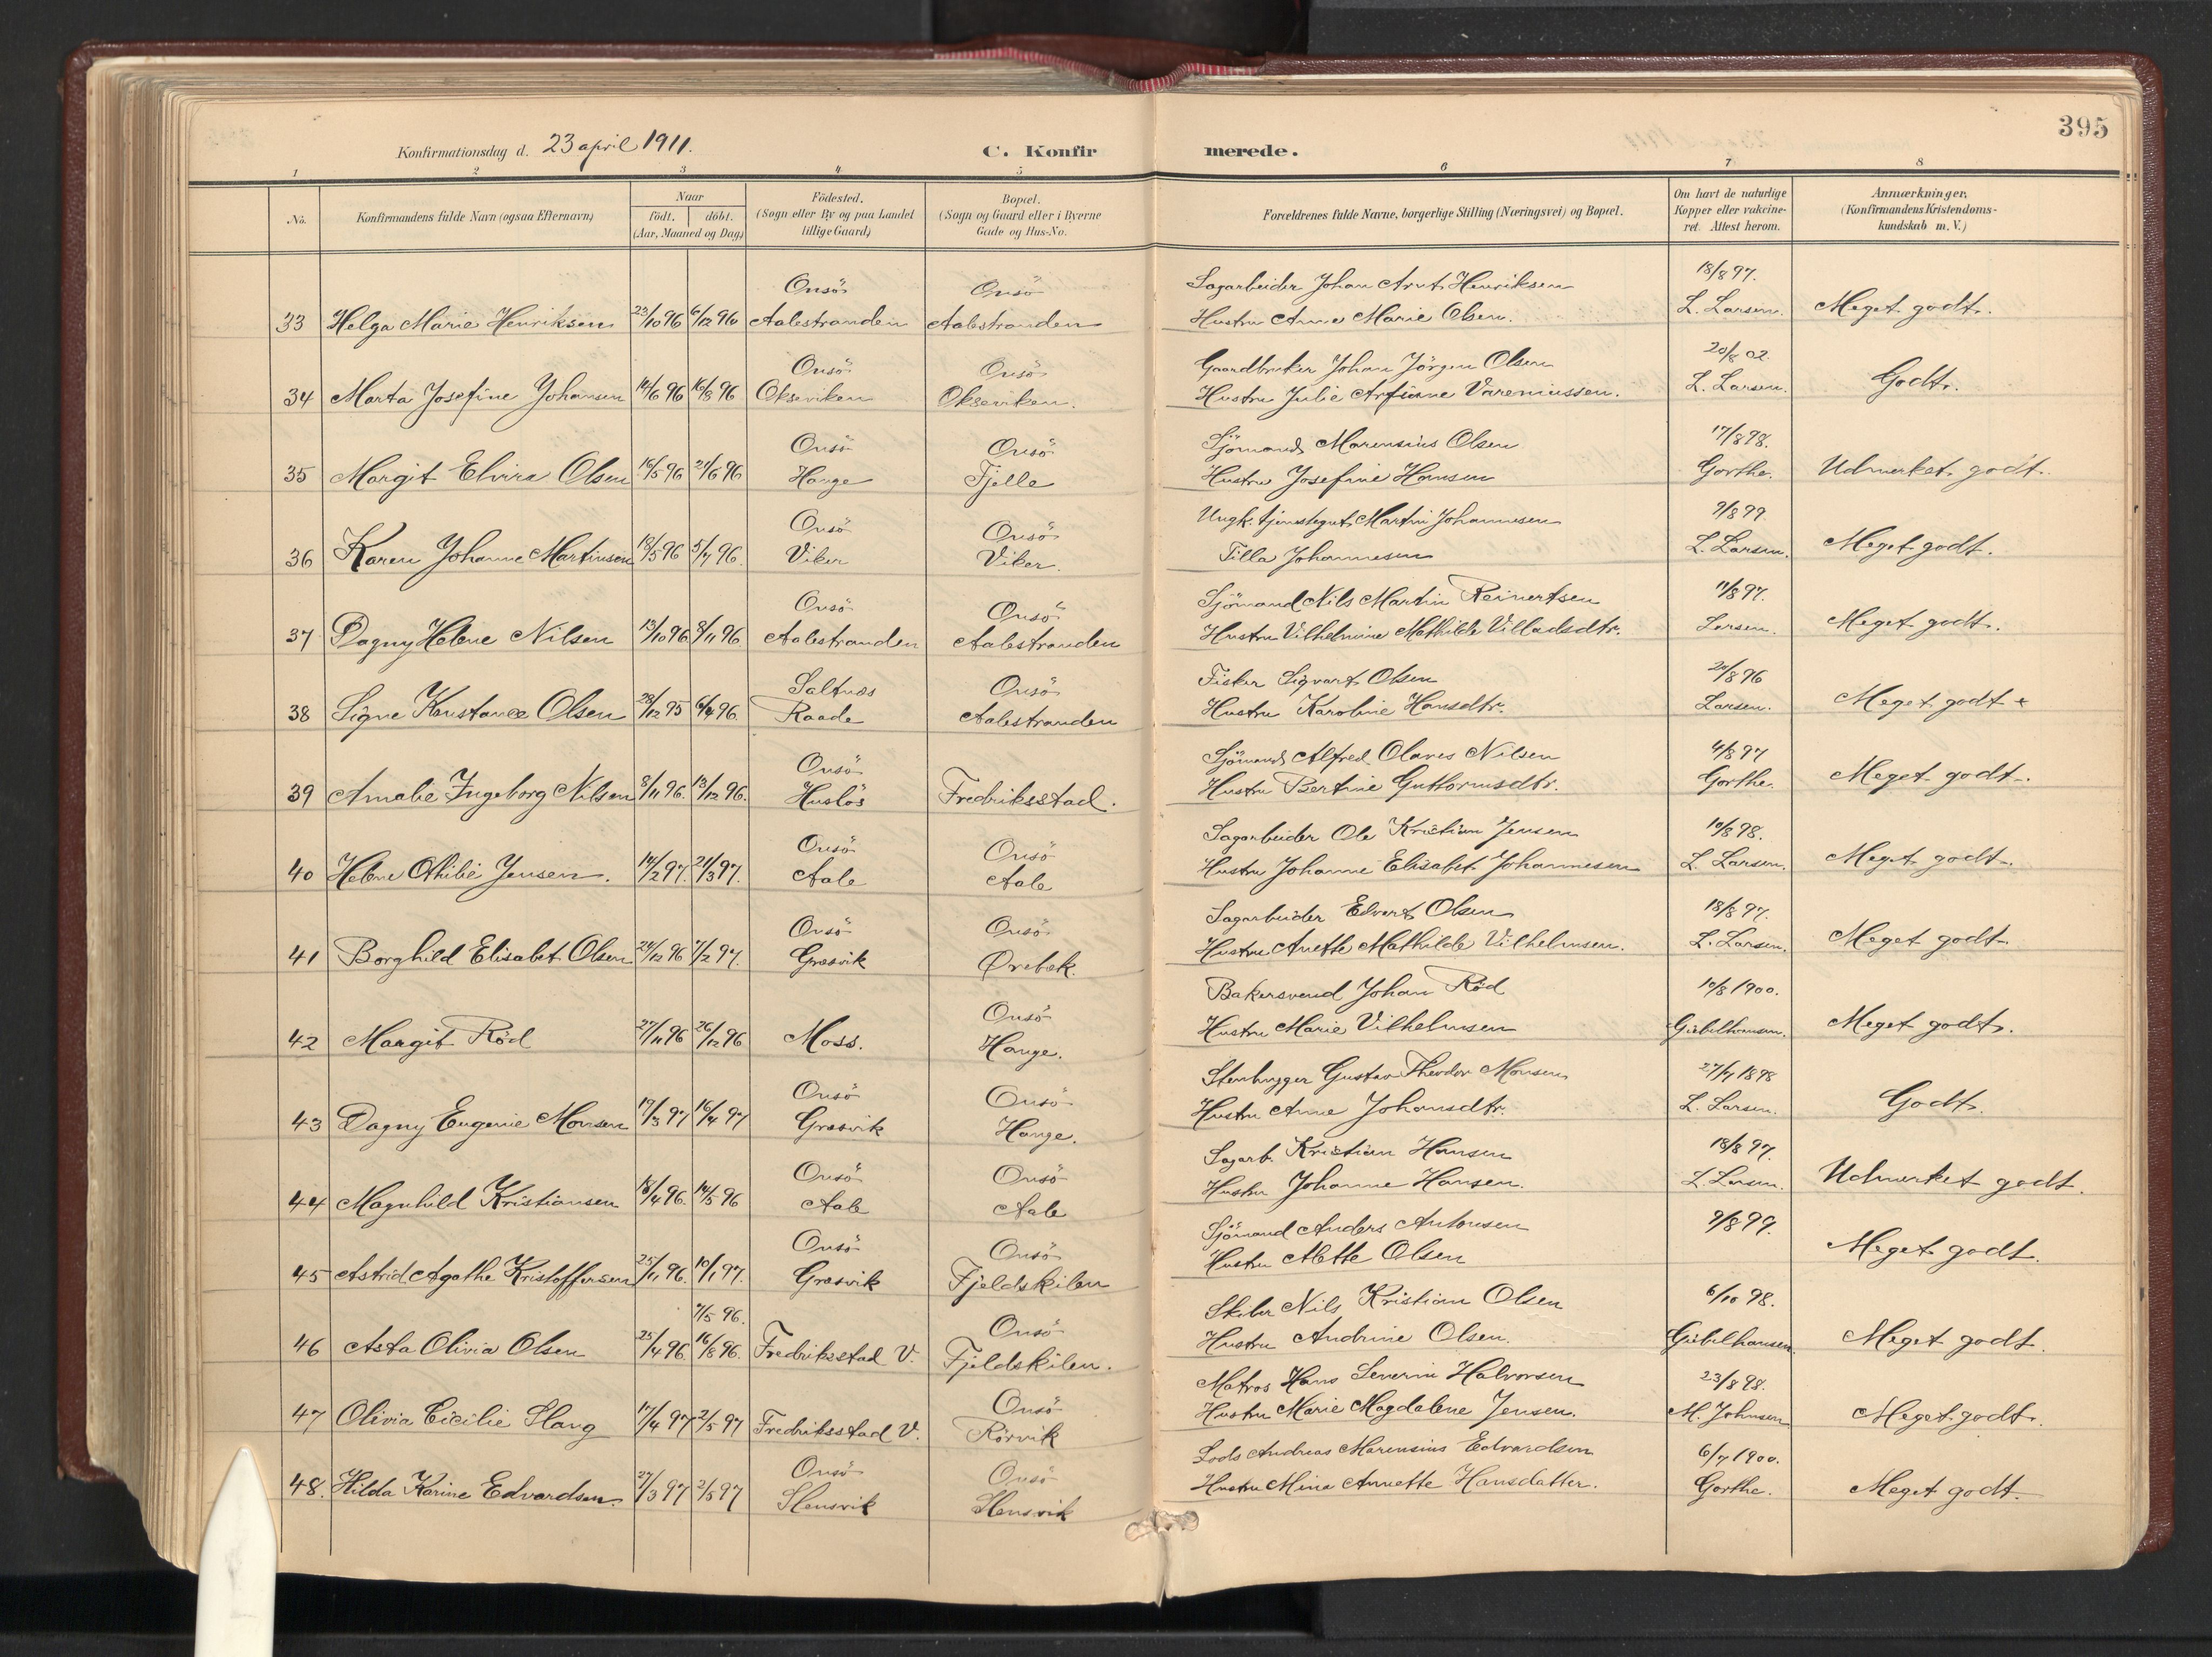 395
Konfirmationsdag d. 23 april 1911.
C. Konfirmerede.
1 2 3 4 5 6 7 8
No.
Konfirmandens fulde Navn (ogsaa Efternavn)
Naar
födt. döbt.
(Aar, Maaned og Dag)
Födested.
(Sogn eller By og paa Landet
tillige Gaard)
Bopæl.
(Sogn og Gaard eller i Byerne
Gade og Hus-No.
Forældrenes fulde Navne, borgerlige Stilling (Næringsvei) og Bopæl.
Om havt de naturlige
Kopper eller vakcine-
ret. Attest herom.
Anmærkninger,
(Konfirmandens Kristendoms-
kundskab m. V.)
Onsö Onsö Sagarbeider Johan Arnt Henriksen 18/8 97.
33 Helga Marie Henriksen 23/10 96 6/12 96 Aalestranden Aalestranden Hustru Anne Marie Olsen. L. Larsen. Meget godt.
Onsö Onsö Gaardbruker Johan Jörgen Olsen 20/8 02.
34 Marta Josefine Johansen 14/6 96 16/8 96 Okseviken Okseviken. Hustru Julie Arfine Vareniussen. L. Larsen. Godt.
Onsö Onsö Sjömand Marensius Olsen 17/8 98.
35 Margit Elvira Olsen 16/5 96 21/6 96 Hauge Fjelle Hustru Josefine Hansen Gorthe. Udmerket godt.
Onsö Onsö Ungk. tjenestegut Martin Johannesen 9/8 99
36 Karen Johanne Martinsen 18/5 96 5/7 96. Viker Viker. Tilla Johannesen L. Larsen. Meget godt.
Onsö Onsö Sjömand Nils Martin Reinertsen 11/8 97.
37 Dagny Helene Nilsen 13/10 96 8/11 96. Aalestranden Aalestranden Hustru Vilhelmine Mathilde Villadsdtr. Larsen. Meget godt.
Saltnes Onsö Fisker Sigvart Olsen 20/8 96
38 Signe Konstance Olsen 28/12 95 6/4 96. Raade Aalestranden Hustru Karoline Hansdtr. Larsen. Meget godt
Onsö Sjömand Alfred Olaves Nilsen 4/8 97
39 Amalie Ingeborg Nilsen 8/11 96. 13/12 96. Huslös Fredriksstad. Hustru Bertine Guttormsdtr. Gorthe. Meget godt.
Onsö Onsö Sagarbeider Ole Kristian Jensen 10/8 98.
40 Helene Othilie Jensen. 14/2 97. 21/3 97. Aale Aale Hustru Johanne Elisabet Johannesen L. Larsen. Meget godt.
Onsö Onsö Sagarbeider Edvart Olsen 18/8 97.
41 Borghild Elisabet Olsen 24/12 96 7/2 97. Græsvik Ørebek. Hustru Anette Mathilde Vilhelmsen. L. Larsen. Meget godt.
Onsö Bakersvend Johan Röd 10/8 1900.
42 Margit Röd 27/11 96 26/12 96 Moss. Hauge. Hustru Marie Vilhelmsen Giebelhausen. Meget godt.
Onsö Onsö Stenhugger Gustav Theodor Monsen 27/7 1898
43 Dagny Eugenie Monsen 19/3 97 16/4 97 Græsvik Hauge. Hustru Anne Johansdtr. L. Larsen. Godt.
Onsö Onsö Sagarb. Kristian Hansen 18/8 97.
44 Magnhild Kristiansen 18/4 96. 14/5 96 Aale Aale Hustru Johanne Hansen. L. Larsen. Udmerket godt.
Onsö Onsö Sjömand Anders Antonsen 9/8 99.
45 Astrid Agathe Kristoffersen 25/11 96. 10/1 97. Græsvik Fjeldskilen Hustru Mette Olsen Meget godt.
7/5 96. Onsö Nils Kristian Olsen 6/10 98.
46 Asta Olivia Olsen 25/4 96 16/8 96. Fredriksstad V. Fjeldskilen. Hustru Andrine Olsen. Giebelhausen. Meget godt.
Onsö Matros Hans Severin Halvorsen 23/8 98.
47 Olivia Cicilie Slang 17/4 97 2/5 97 Fredriksstad V. Rörvik Hustru Marie Magdalene Jensen. M. Johnsen Meget godt.
Onsö Onsö Lods Andreas Marensius Edvardsen 6/7 1900.
48. Hilda Karine Edvardsen 27/3 97 2/5 97 Slensvik Slensvik Hustru Mina Annette Hansdatter. Gorthe. Meget godt.